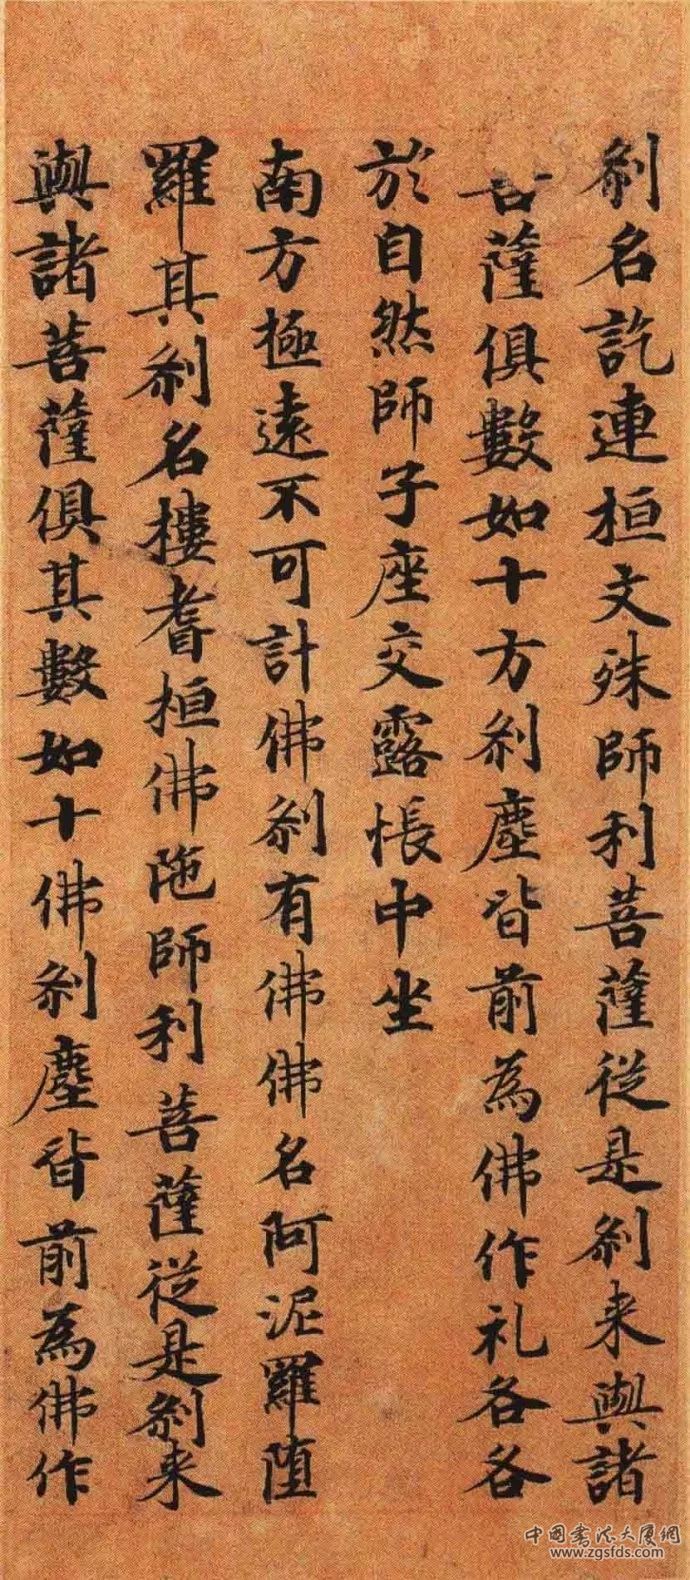 刹名訖連桓文殊師利菩薩從是刹来與諸
菩薩俱數如十方刹塵皆前為佛作礼各各
於自然師子座交露帳中坐
南方極遠不可計佛刹有佛佛名阿泥羅墮
羅其刹名樓耆桓佛陁師利菩薩從是刹来
與諸菩薩俱其數如十佛刹塵皆前為佛作
中国书法大厦網
www.zgsfds.com